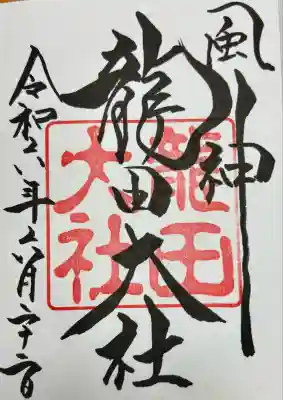 風神
龍田大社
龍田
大社
令和六年六月二十日